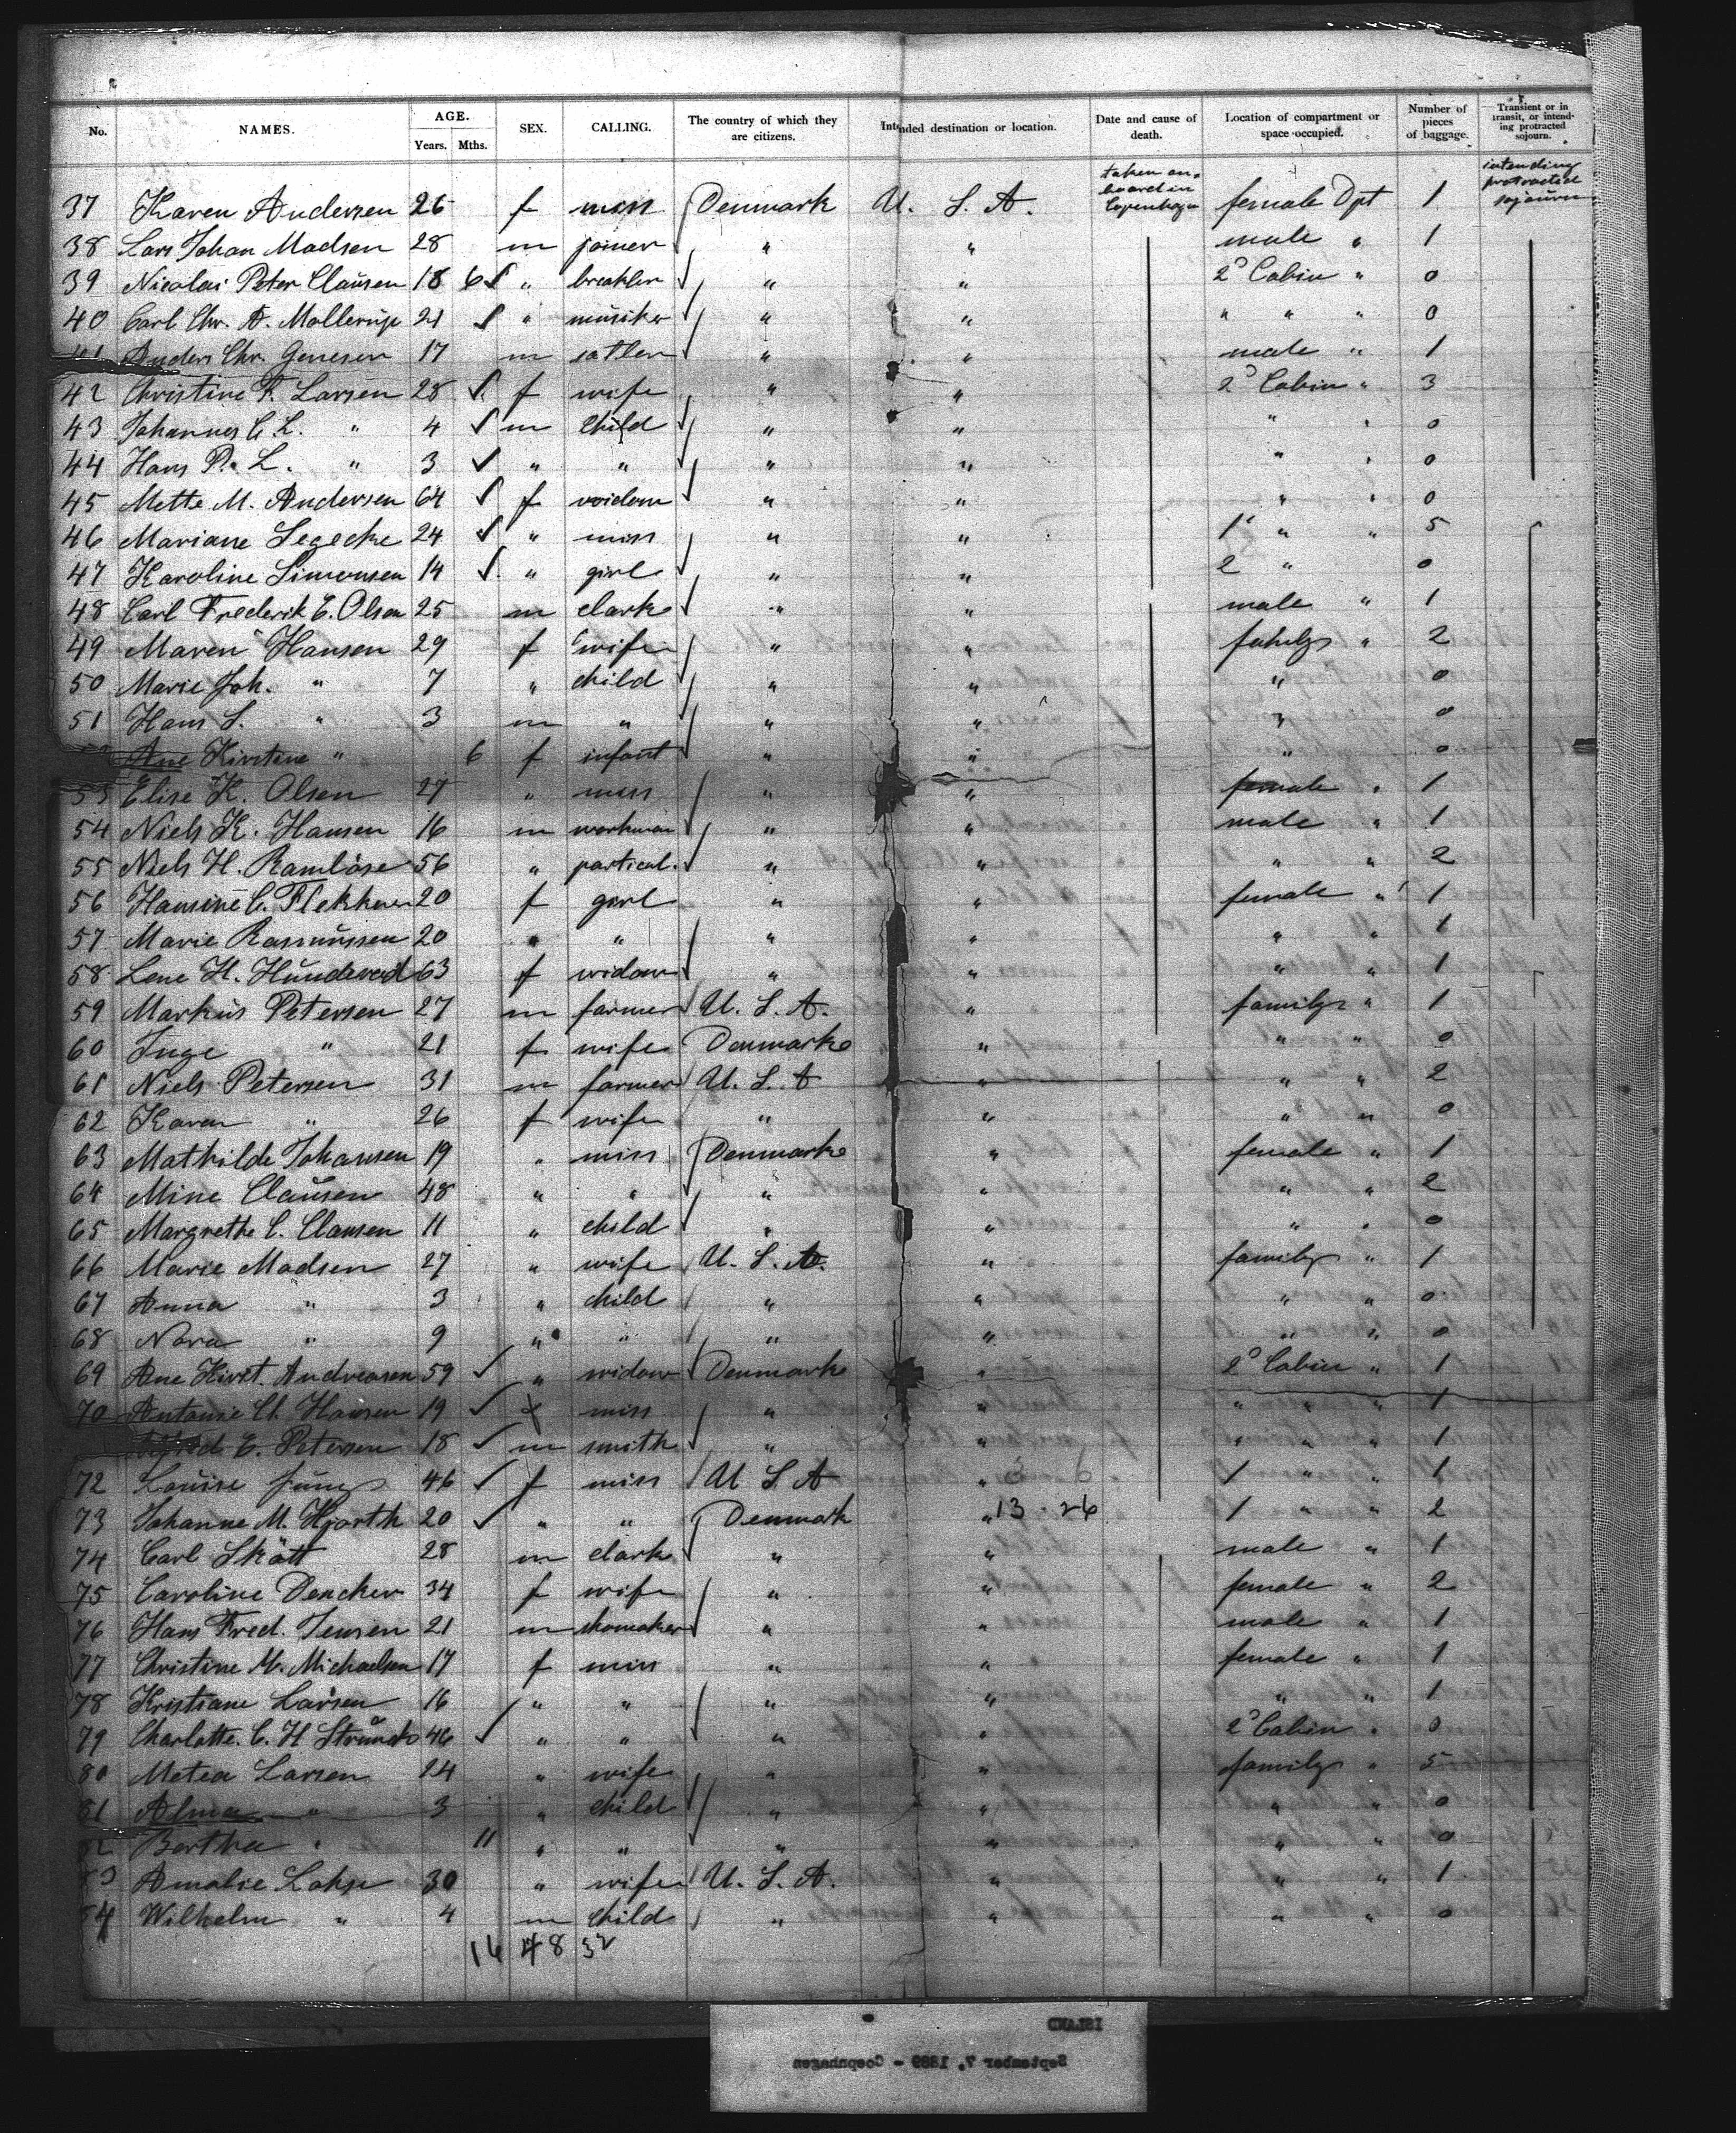 No. NAMES. AGE. Years. Mths. SEX. CALLING. The country of which they are citizens. Intended destination or location. Date and cause of death. Location of compartment or space occupied. Number of pieces of baggage. Transient or in transit, or intending protracted sojourn.
37 Karen Andersen 26 f miss Denmark U. S. A. taken on board in Copenhagen female Dpt 1 intending protracted sojourn
38 Lars Johan Madsen 28 m joiner " " male " 1
39 Nicolai Peter Claüsen 18 6 " " " 2d Cabin " 0
40 Carl Chr. A. Mollerüp 21 " müsiker " " " " " 0
41 Anders Chr. 17 m satler " " male " 1
42 Christine F. Larsen 28 f wife " " 2d Cabin " 3
43 Johannes C. L. " 4 m child " " " " 0
44 Hans P. L. " 3 " " " " " " 0
45 Mette M. Andersen 64 f widow " " " " 0
46 Mariane Segecke 24 " miss " " 1 " " 5
47 Karoline Simonsen 14 " girl " " 2 " 0
48 Carl Frederik E. Olsen 25 m clark " " male " 1
49 Maren Hansen 29 f wife " " " 2
50 Marie Joh. " 7 " child " " " 0
51 Hans S. " 3 m " " " " 0
52 Ane Kirstine " 6 f infant " " " 0
53 Elise K. Olsen 27 " miss " " female " 1
54 Niels K. Hansen 16 m workman " " male " 1
55 Niels H. Ramlöse 56 " particul. " " " " 2
56 Hansine C. 20 f girl " " female " 1
57 Marie Rasmüssen 20 " " " " " " 1
58 Lene H. 63 f widow " " " " 1
59 Markus Petersen 27 m farmer U. S. A. " family " 1
60 Inge " 21 f wife Denmark " " " 0
61 Niels Petersen 31 m farmer U. S. A " " " 2
62 Karen " 26 f wife " " " " 0
63 Mathilde Johansen 19 " miss Denmark " female " 1
64 Mine Claüsen 48 " " " " " " 2
65 Margrethe C. Clausen 11 " child " " " " 0
66 Marie Madsen 27 " wife U. S. A. " family " 1
67 Anna " 3 " child " " " " 0
68 Nora " 9 " " " " " " 0
69 Ane Kirst. Andreasen 59 " widow Denmark " 2d Cabin " 1
70 Antonie C. Hansen 19 f miss " " " " " 1
E. Petersen 18 m smith " " " " " 1
72 Louise Jüng 46 f miss U S A " 1 " " 1
73 Johanne M. Hjorth 20 " " Denmark " 13 26 1 " " 2
74 Carl Skött 28 m clark " " male " 1
75 Caroline Dencker 34 f wife " " female " 2
76 Hans Fred. Jensen 21 m shomaker " " male " 1
77 Christine M. Michaelsen 17 f miss " " female " 1
78 Kristiane Larsen 16 " " " " " " 1
79 Charlotte. C. H 46 " " " " 2d Cabin " 0
80 Metea Larsen 24 " wife " " family " 5
81 Alma " 3 " child " " " " 0
82 Bertha " 11 " " " " " " 0
83 Amalie Lohse 30 " wife U. S. A. " " " 1
84 Wilhelm " 4 m child " " " " 0
16 48 32
ISLAND
September 7, 1889 - Coepnhagen